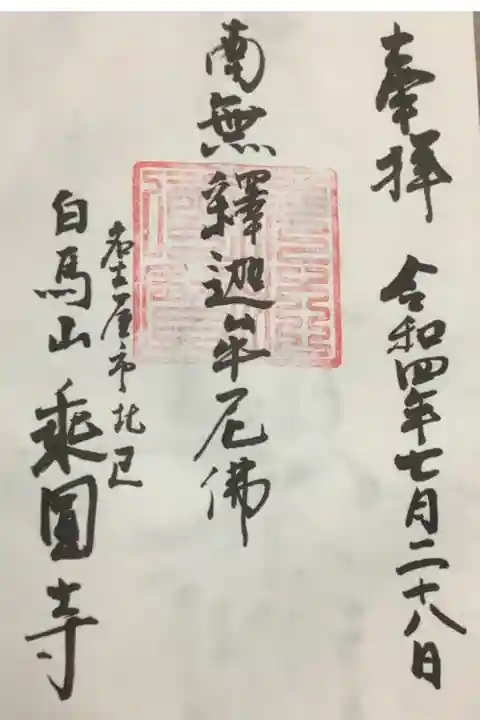 奉拝 令和四年七月二十八日
南無釋迦牟尼佛
名古屋市北区
白馬山 乘圓寺